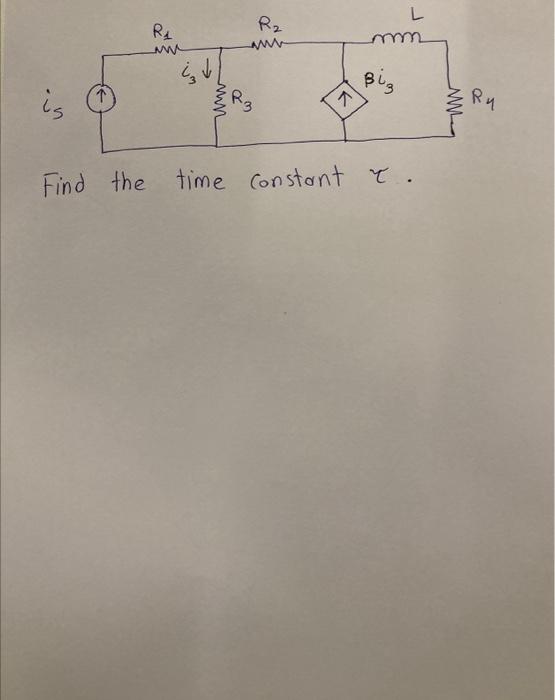 L
R1 R2
i3 ↓ Bi3
is R3 R4
Find the time constant τ.